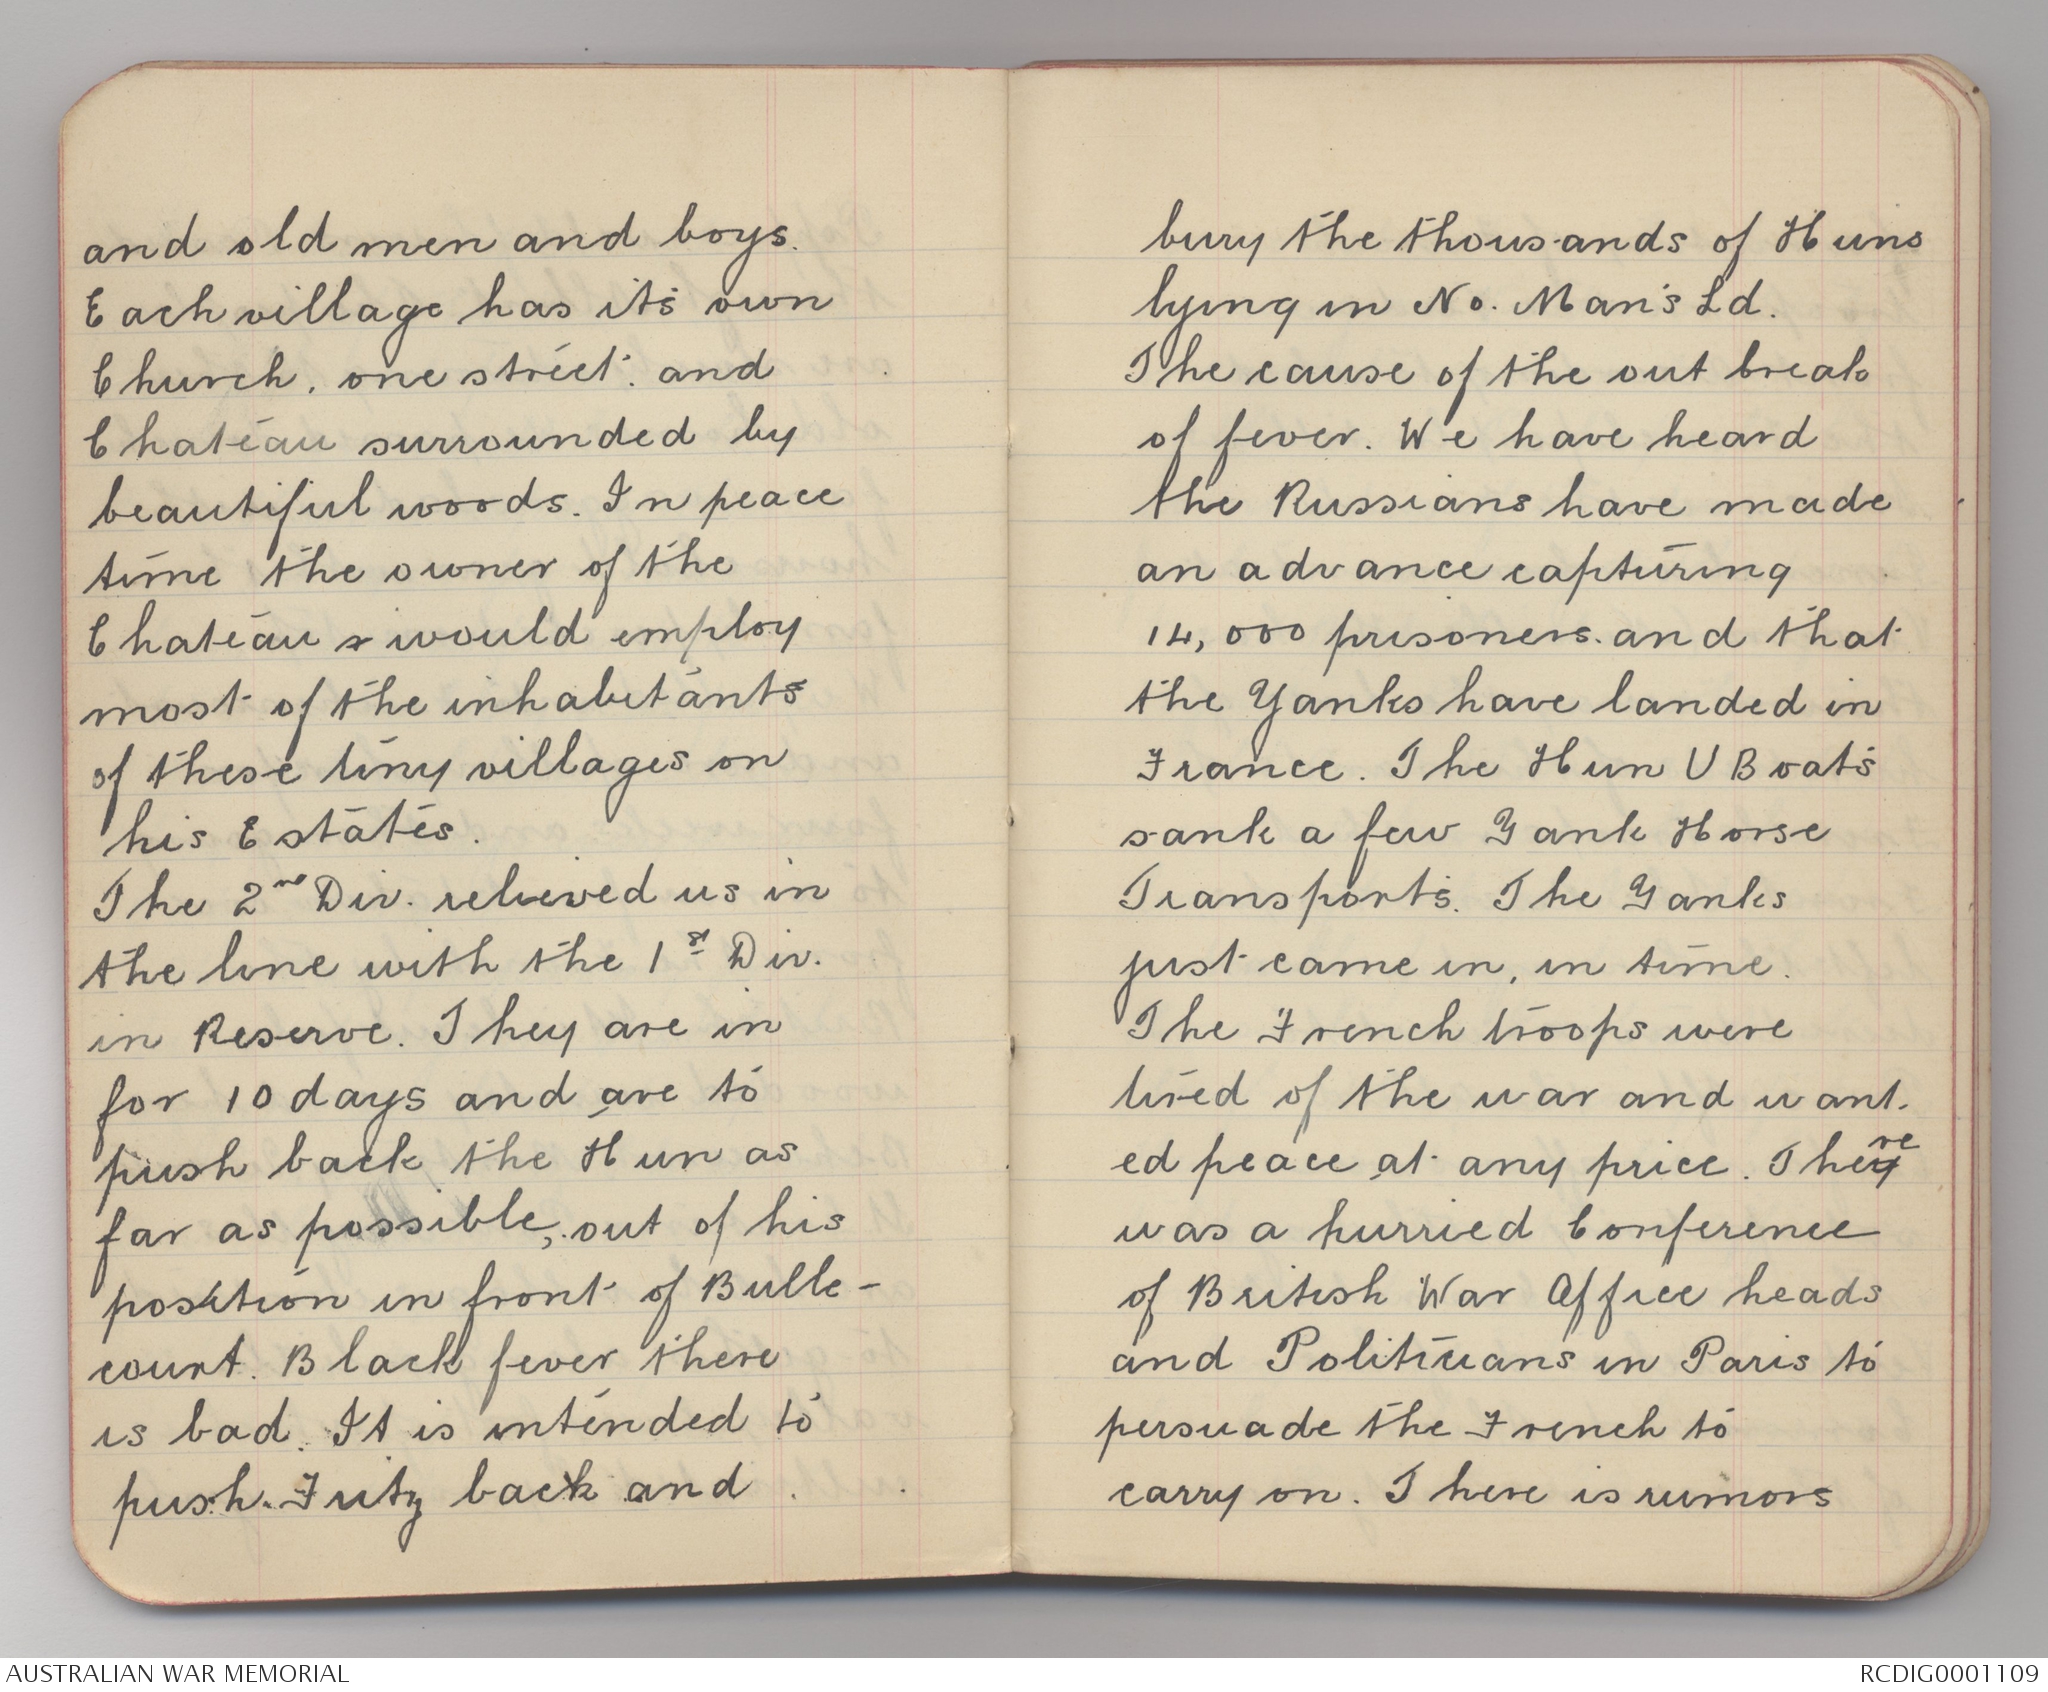 and old men and boys.
Each village has its own
Church, one street. and
Chateau surrounded by
beautiful woods. In peace
time the owner of the
Chateau s would employ
most of the inhabitants
of these tiny villages on
his Estates.
The 2nd Div. relieved us in
the line with the 1st Div.
in Reserve. They are in
for 10 days and are to
push back the Hun as
far as possible, out of his
position in front of Bulle-
court. Black fever there
is bad. It is intended to
push Fritz back and
bury the thousands of Huns
lying in No. Man's Ld.
The cause of the out break
of fever. We have heard
the Russians have made
an advance capturing
14,000 prisoners. and that
the Yanks have landed in
France. The Hun U Boats
sank a few Yank Horse
Transports. The Yanks
just came in, in time.
The French troops were
tired of the war and want-
ed peace at any price. There
was a hurried Conference
of British War Office heads
and Politicians in Paris to
persuade the French to
carry on. There is rumors
AUSTRALIAN WAR MEMORIAL
RCDIG0001109